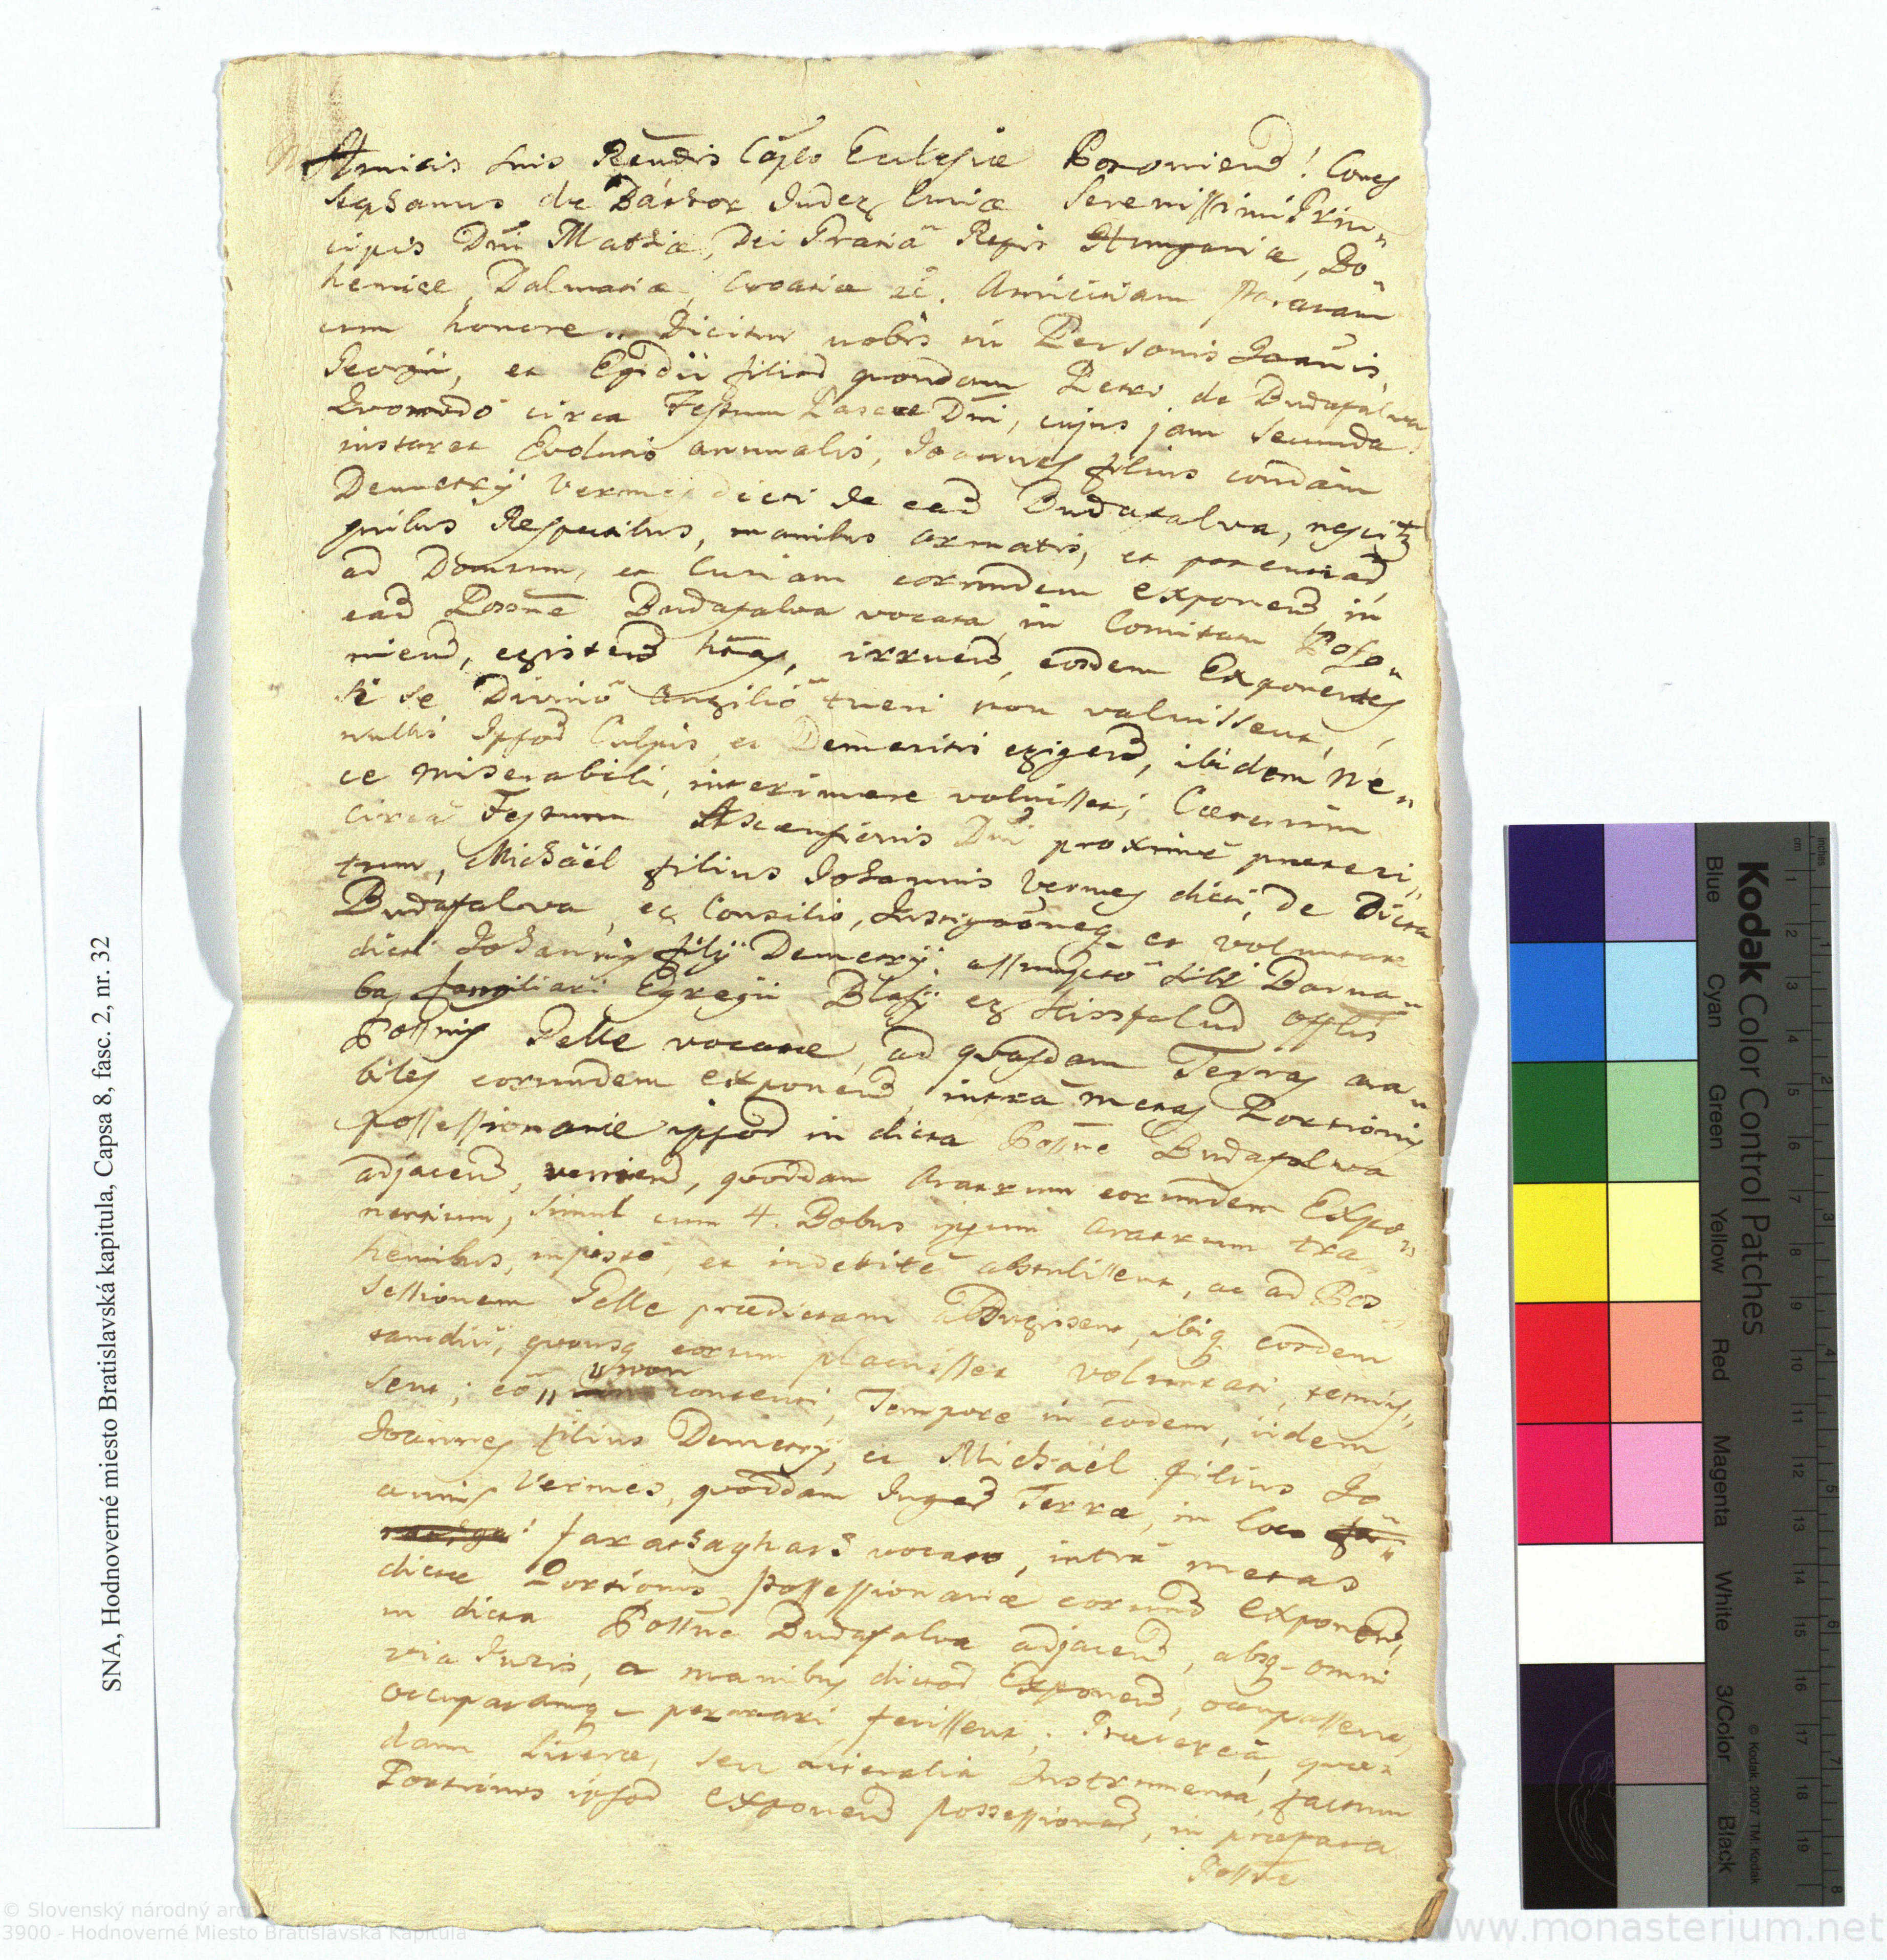 Amicis suis Rendis Caplo Eclesiæ Posoniend! Comes
Stephanus de Báthor Judex Curiæ Serenissimi Prin„
cipis Dni Mathiæ, Dei Gratiâ Regis Hungariæ, Bo„
hemiæ, Dalmatiæ, Croatiæ etc. Amicitiam paratam
cum honore.. Dicitur nobis in Personis Joanis,
Georgii, et Egidii filiod quondam Petri de Budafalva
Quomodo circa Festum Pascæ Dni, cujus jam secunda
instaret Evolutio annualis, Joannes filius condam
Demetrij Vermes dicti de ead Budafalva, nescitr
quibus Respectibus, manibus armatis, et potentiad
ad Domum, et Curiam eorumdem exponend in
ead Possne Budafalva vocata in Comitatu Poso„
niend, existend htas, irruend, eosdem Exponentes
si se Divinô Auxiliô tueri non valuissent,
nullis Ipsod Culpis, et Demeritis exigend, ibidem Ne„
ce miserabili, interimere voluisset; Cæterum
circa Festum Ascensionis Dni proximè præteri„
tum, Michaël filius Johannis Vermes dicti, de dicta
Budafalva, ex Consilio, Instigaoneq et voluntate
dicti Johannis filij Demetrij, assumptô sibi Barna„
bas familiari Egregii Blasij ex Kissfalud offlis
Possnis Pelle vocatæ, ad quasdam Terras ara„
biles eorumdem exponend, intrà metas Portionis
possessionariæ ipsod in dicta Possne Budafalva
adjacend, veniend, quoddam Aratrum eorumdem Expo„
nentium, simul cum 4. Bobus ipsum aratrum tra„
hentibus, injustè, et indebitè abstulissent, ac ad Pos„
sessionem Pelle prædictam abduxissent, ibiq eosdem
tamdiù, quousq eorum placuisset voluntati, tenuis„
sent; eô„ „non contenti, Tempore in eodem, iidem
Joannes filius Demetrij, et Michaël filius Jo„
annis Vermes, quoddam Juger Terræ, in loco
farkashaghath vocato, intrà metas
dictæ Portionis possessionariæ eorumd exponend,
in dicta Possne Budafalva adjacend, absq omni
via Juris, a manibus dictod Exponend, occupassent,
occupatamq permanere fecissent; Prætereà, quæ„
dam Literæ, seu literalia Instrumenta, factum
Portionis ipsod Exponend possessionad, in præfata
Possne
SNA, Hodnoverné miesto Bratislavská kapitula, Capsa 8, fasc. 2, nr. 32
Kodak Color Control Patches
Blue Cyan Green Yellow Red Magenta White 3/Color Black
© Kodak, 2007 TM: Kodak
cm 1 2 3 4 5 6 7 8 9 10 11 12 13 14 15 16 17 18 19
inches 1 2 3 4 5 6 7 8
© Slovenský národný archív
3900 - Hodnoverné Miesto Bratislavská Kapitula
www.monasterium.net